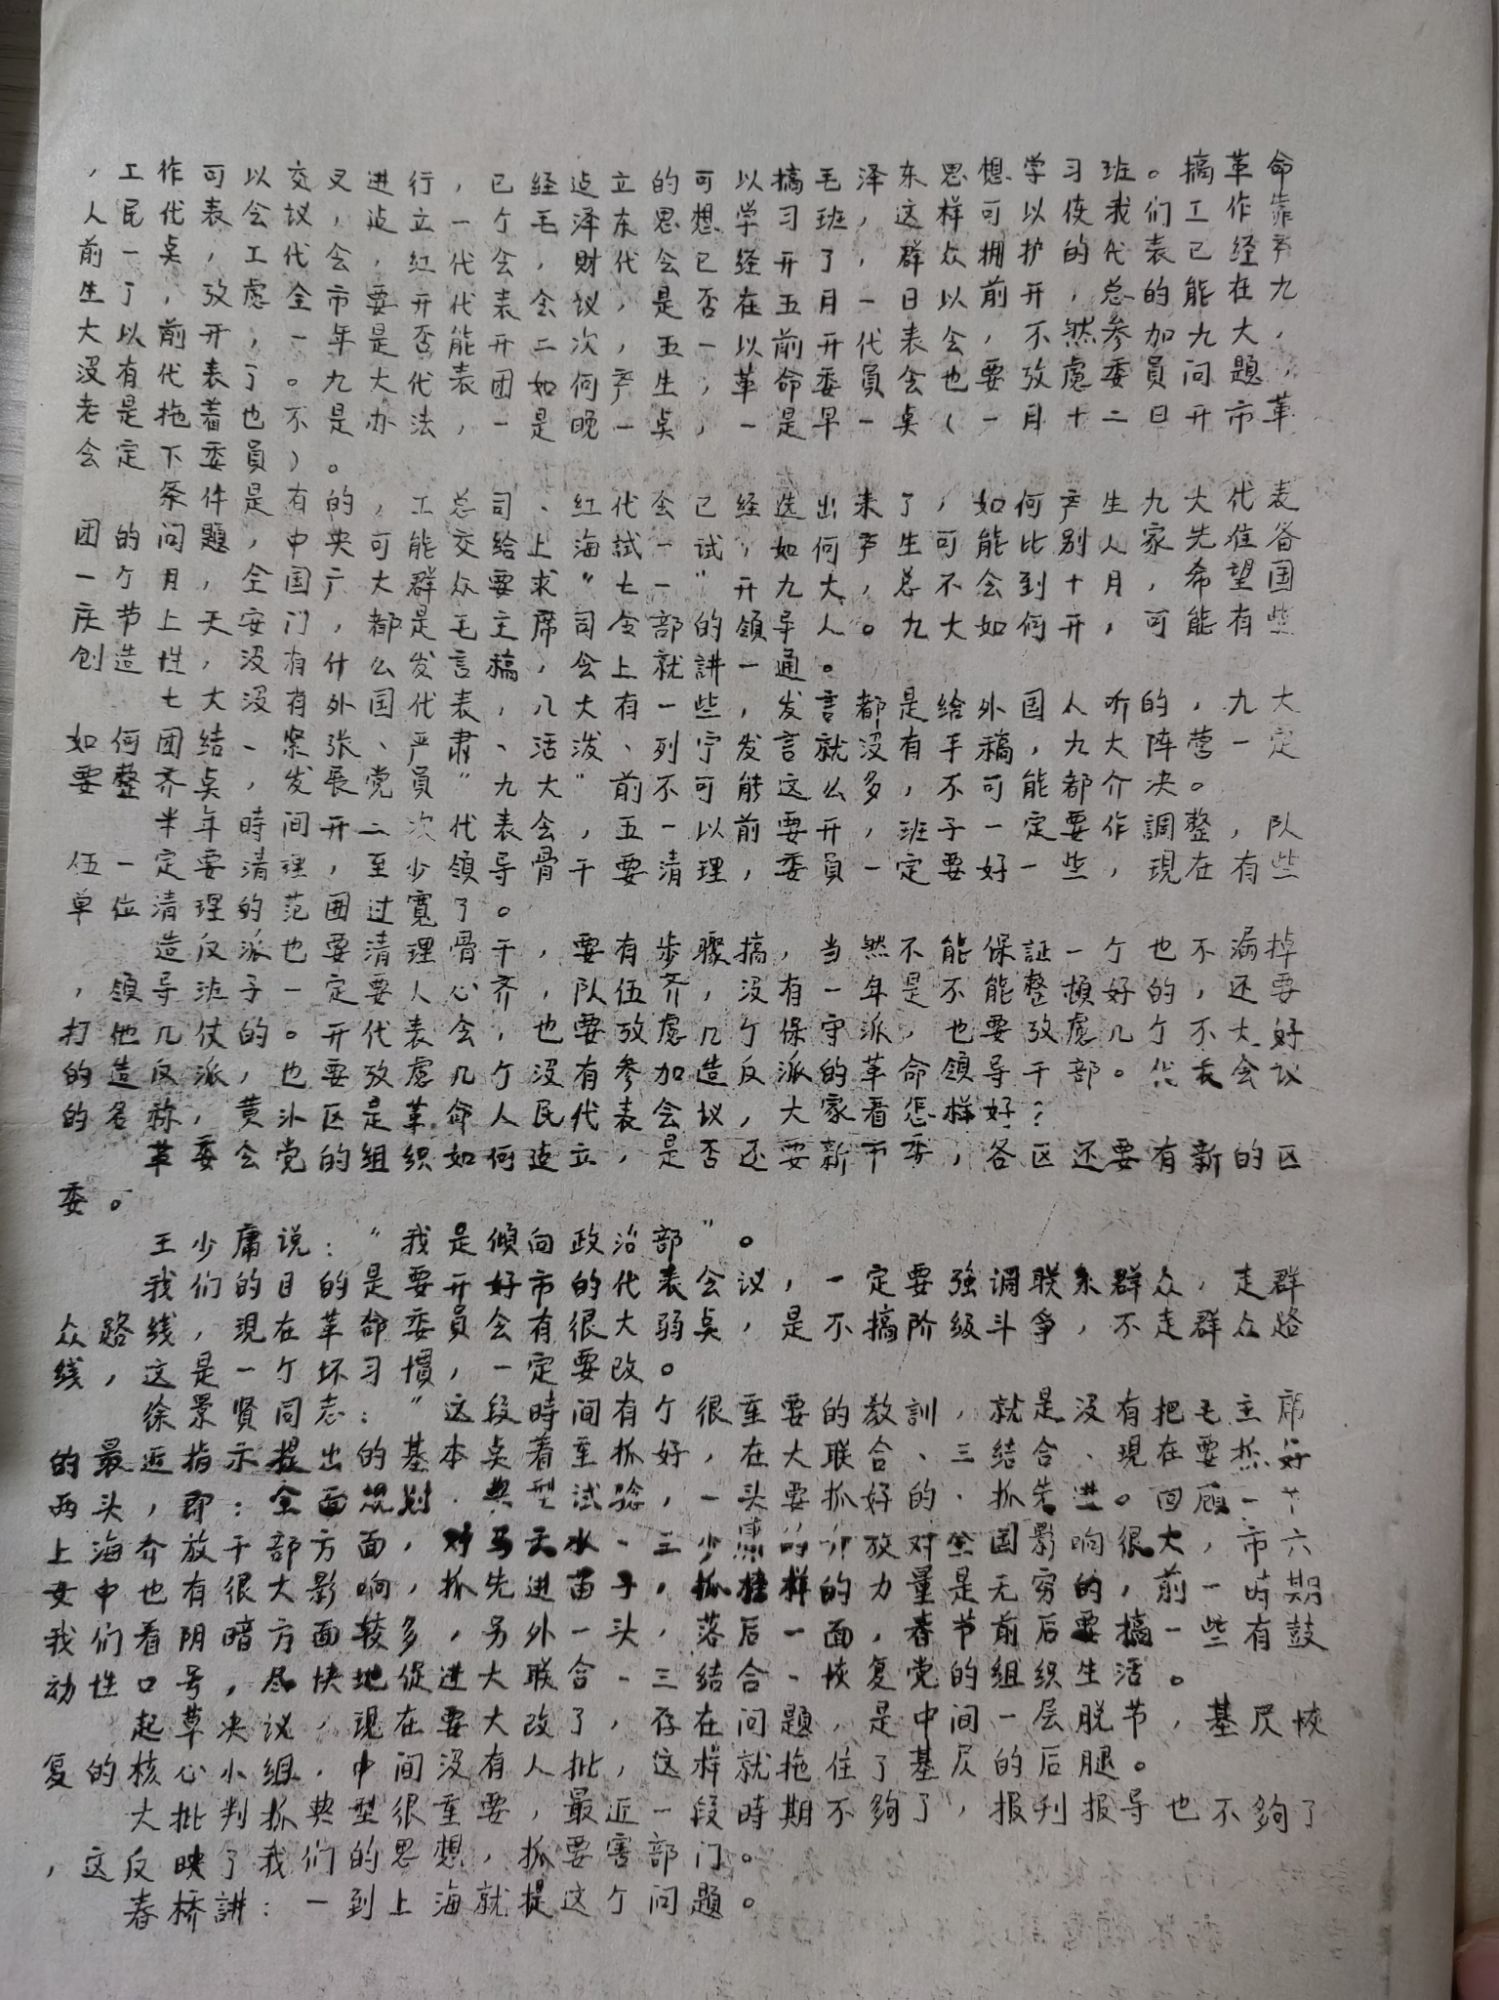 ，工作可以交叉进行，已经迠立的可以搞毛泽东思想学习班。搞革命
人民代表会议，迠立一个毛泽东思想学习班，这样可以使我们工作靠
前一桌，工代会，红代会，财代会已经开了，群众拥护的代表已经产
生了，攷虑全市要开代表会议，是否在五月一日以前开，总的能在九
大以前开，一年是否能开二次，五一以前开代表会，不然参加九大，
没有代表了。九大代表团如何产生，革命委員会也要攷虑委員问题，
老是拖着也不是办法，一是晚一桌，一是早一桌（一月十二日开市革
会定下委員）。
条件是有的，工总司、红代会已经选出来了，如何产生九大代表
团的问题，中央可能交给上海試一试，如何产生可能比别人家先准备
一个月，全国广大群众要求“七一”开九大，总不会到十月，希望国
庆节上天安门，都是毛主席司令部的領导人。九大如何开，可能有些
创造性，没有什么发言稿，会上就讲一通。
七大没有外国代表，八大有一些，发言都是给外国人听的，九大
如何团结、紧张、严肃、活泼、列宁发言就没有手稿，九大阵营一定
要整齐桌，发展党員“九大”前不可能这么多，不可能都介决。
半年時间开二次代表会，五一以前要开，班子一定要作調整，队
伍一定要清理，至少领导骨干要清理，委員一定要好一些，現在有些
单位清理的范围过寬了。
造反派也要清理骨干，要有步驟搞，当然不能保証一个也不漏掉
，領导班子一定要人心齐，队伍齐，没有一年是不能整頓好的，还要
打他几仗的。开代表会，也要攷虑几个保守派，也要攷虑几个不大好
的造反派，也要攷虑几个没有参加造反派的革命领导干部。代表会议
的名称，黄氵区是革命人民代表会议，大家看怎样好？
革委会党的組织如何迠立，是否还要新市委，各区还要有新的区
委。
王少庸说：“我是倾向政治部”。
我们的目的是要开好市的代表会议，一定要強调联系群众，走群
众路线，現在革命委員会有很大弱桌，是不搞阶级斗争，不走群众路
线，这是一个坏习惯，一定要改。
徐景贤同志：“这段時间有个很重要的教訓，就是没有把毛主席
的最近指示提出的基本桌着重抓好，在大联合、三结合、現在要抓好
两头，即：全面规划、典型试验，一头要抓好的、抓先进。回顾一下
上海介放干部方面，对马天水、王少庸的介放对全国影响很大，市六
女中也有很大影响，抓先进苗子，抓榜样的力量是无穷的，前一時期
我们看阴暗方面较多，另外一头，落后一面，春节前后要搞一些有鼓
动性口号，尽快地促进大联合、三结合、恢复党的组织生活。
起草决议，現在要大改了，存在问题，是中间一层脱节，基层恢
复的核心小组，中间没有人批，这样就拖住了基层的后腿。
大批判抓典型很重要，最近一段時期不夠了，报刊报导也不夠了
，这反映了我们的思想，抓要害部门。
春桥讲：一到上海就提这个问题。